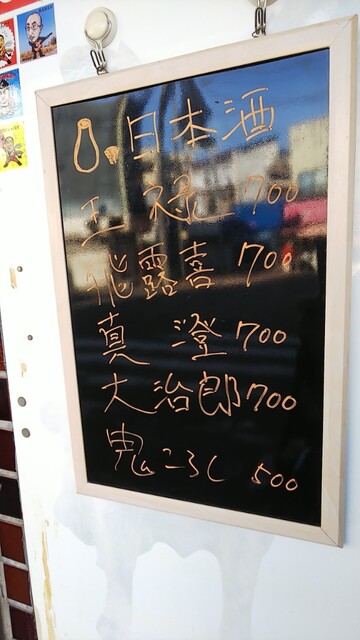 日本酒
王禄 700
飛露喜 700
真澄 700
大治郎 700
鬼ころし 500